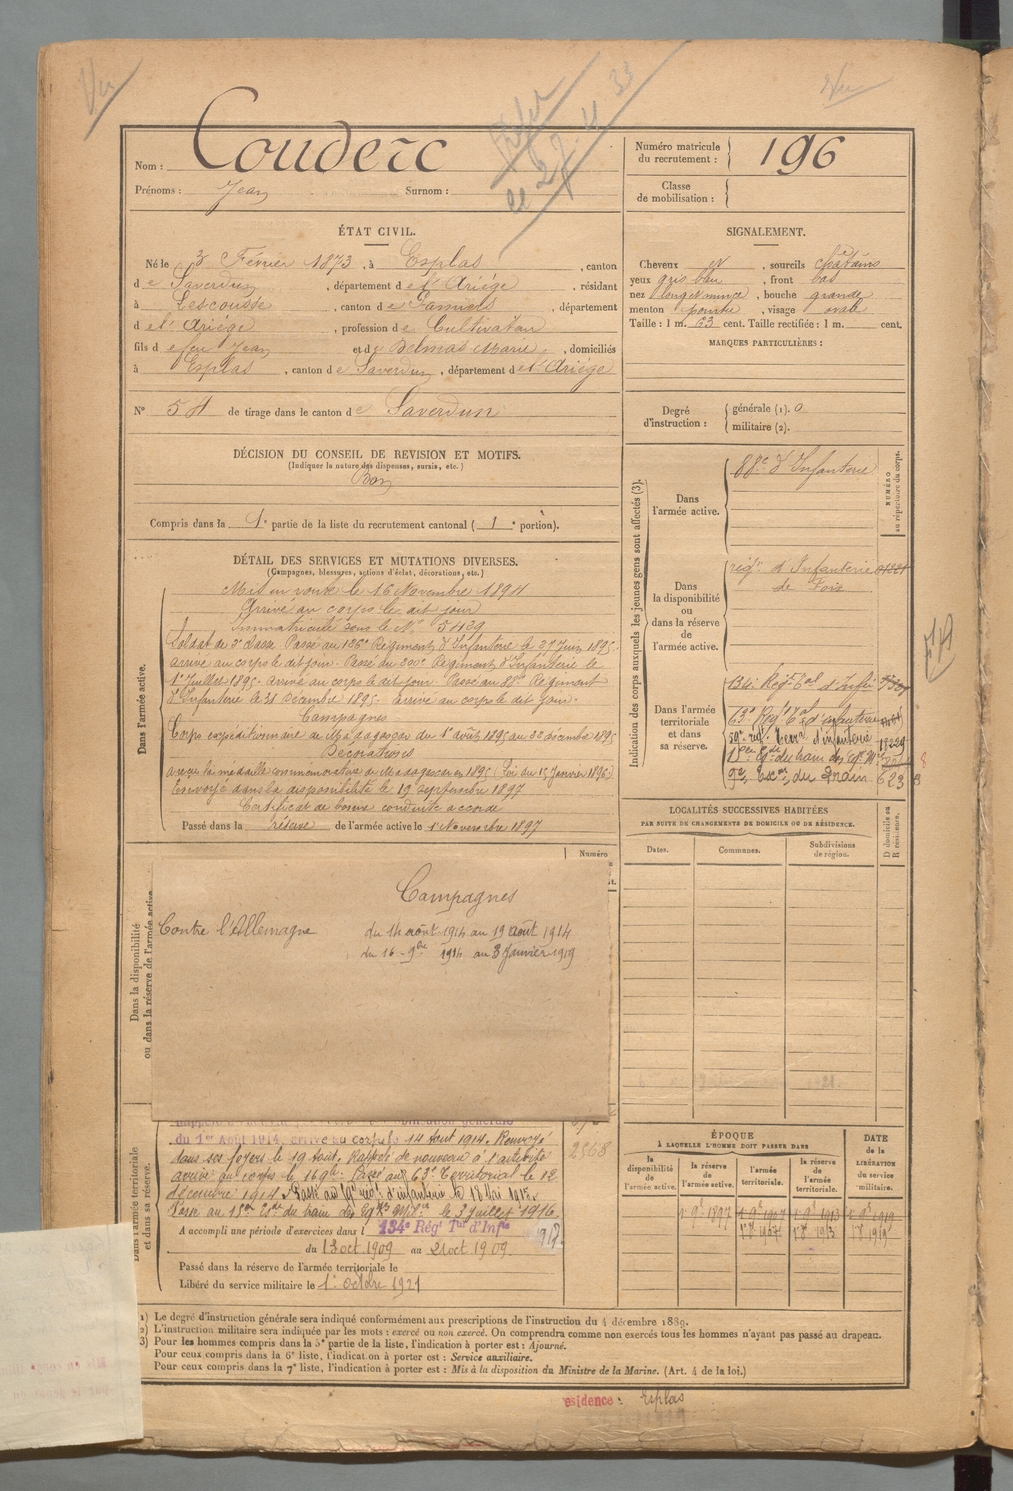 Vu
Vu
Nom : Couderc
Prénoms : Jean Surnom :
Numéro matricule du recrutement : 196
Classe de mobilisation :
ÉTAT CIVIL.
Né le 3 Février 1873, à Esplas, canton
de Saverdun, département de l'Ariège, résidant
à Lescousse, canton de Pamiers, département
de l'Ariège, profession de Cultivateur
fils de feu Jean et de Delmas Marie, domiciliés
à Esplas, canton de Saverdun, département de l'Ariège
N° 54 de tirage dans le canton de Saverdun
SIGNALEMENT.
Cheveux et, sourcils châtains
yeux gris bleu, front bas
nez long et mince, bouche grande
menton pointu, visage ovale
Taille : 1 m. 63 cent. Taille rectifiée : 1 m. cent.
MARQUES PARTICULIÈRES :
Degré d'instruction : générale (1). 0
militaire (2).
DÉCISION DU CONSEIL DE REVISION ET MOTIFS.
(Indiquer la nature des dispenses, sursis, etc.)
Bon
Compris dans la 1e partie de la liste du recrutement cantonal (1e portion).
DÉTAIL DES SERVICES ET MUTATIONS DIVERSES.
(Campagnes, blessures, actions d'éclat, décorations, etc.)
Dans l'armée active.
Mis en route le 16 Novembre 1894
Arrivé au corps le dit jour
Immatriculé sous le N° 5439
Soldat de 2e classe. Passé au 136e Régiment d'Infanterie le 27 juin 1895
arrivé au corps le dit jour. Passé au 200e Régiment d'Infanterie le
1er Juillet 1895. arrivé au corps le dit jour. Passé au 88e Régiment
d'Infanterie le 31 Décembre 1895. arrivé au corps le dit jour.
Campagnes
Corps expéditionnaire de Madagascar du 1er août 1895 au 22 décembre 1895
Décorations
a reçu la médaille commémorative de Madagascar 1895 (Loi du 15 Janvier 1896)
Envoyé dans la disponibilité le 19 septembre 1897
Certificat de bonne conduite accordé
Passé dans la réserve de l'armée active le 1er Novembre 1897
Indication des corps auxquels les jeunes gens sont affectés (3).
NUMÉRO au répertoire du corps.
Dans l'armée active.
88e d'Infanterie
Dans la disponibilité ou dans la réserve de l'armée active.
régt d'Infanterie
de Foix
Dans l'armée territoriale et dans sa réserve.
134e Régt Tal d'Infie
63e Régt Tal d'infanterie
59e régt Terral d'infanterie 18229
18e Esc. du train 623
LOCALITÉS SUCCESSIVES HABITÉES
PAR SUITE DE CHANGEMENTS DE DOMICILE OU DE RÉSIDENCE.
Dates. Communes. Subdivisions de région. D domicile ou R résidence.
Numéro
Dans la disponibilité ou dans la réserve de l'armée active
Campagnes
Contre l'Allemagne du 14 août 1914 au 19 août 1914
du 16 - 9bre 1914 au 3 Janvier 1919
Dans l'armée territoriale et dans sa réserve.
du 1er Août 1914, arrivé au corps le 14 Août 1914. Renvoyé
dans ses foyers le 19 Août. Rappelé de nouveau à l'activité
arrivé au corps le 16 9bre. Passé au 63e Territorial le 12
décembre 1914. Passé au 59e régt d'infanterie
Passé au 18e Esc. du train des Eq. Mil. le 3 juillet 1916.
2568
A accompli une période d'exercices dans l 134e Régt Tal d'Infie
du 13 oct. 1909 au 21 oct 1909.
Passé dans la réserve de l'armée territoriale le
Libéré du service militaire le 1er octobre 1921
ÉPOQUE
À LAQUELLE L'HOMME DOIT PASSER DANS
la disponibilité de l'armée active.
la réserve de l'armée active.
l'armée territoriale.
la réserve de l'armée territoriale.
DATE de la LIBÉRATION du service militaire.
1er 9bre 1897 1er 9bre 1907 1er 9bre 1913 1er 9bre 1919
1er 8bre 1907 1er 8bre 1913 1er 8bre 1919
1) Le degré d'instruction générale sera indiqué conformément aux prescriptions de l'instruction du 4 décembre 1889.
2) L'instruction militaire sera indiquée par les mots : exercé ou non exercé. On comprendra comme non exercés tous les hommes n'ayant pas passé au drapeau.
3) Pour les hommes compris dans la 5e partie de la liste, l'indication à porter est : Ajourné.
Pour ceux compris dans la 6e liste, l'indication à porter est : Service auxiliaire.
Pour ceux compris dans la 7e liste, l'indication à porter est : Mis à la disposition du Ministre de la Marine. (Art. 4 de la loi.)
esidence : Esplas